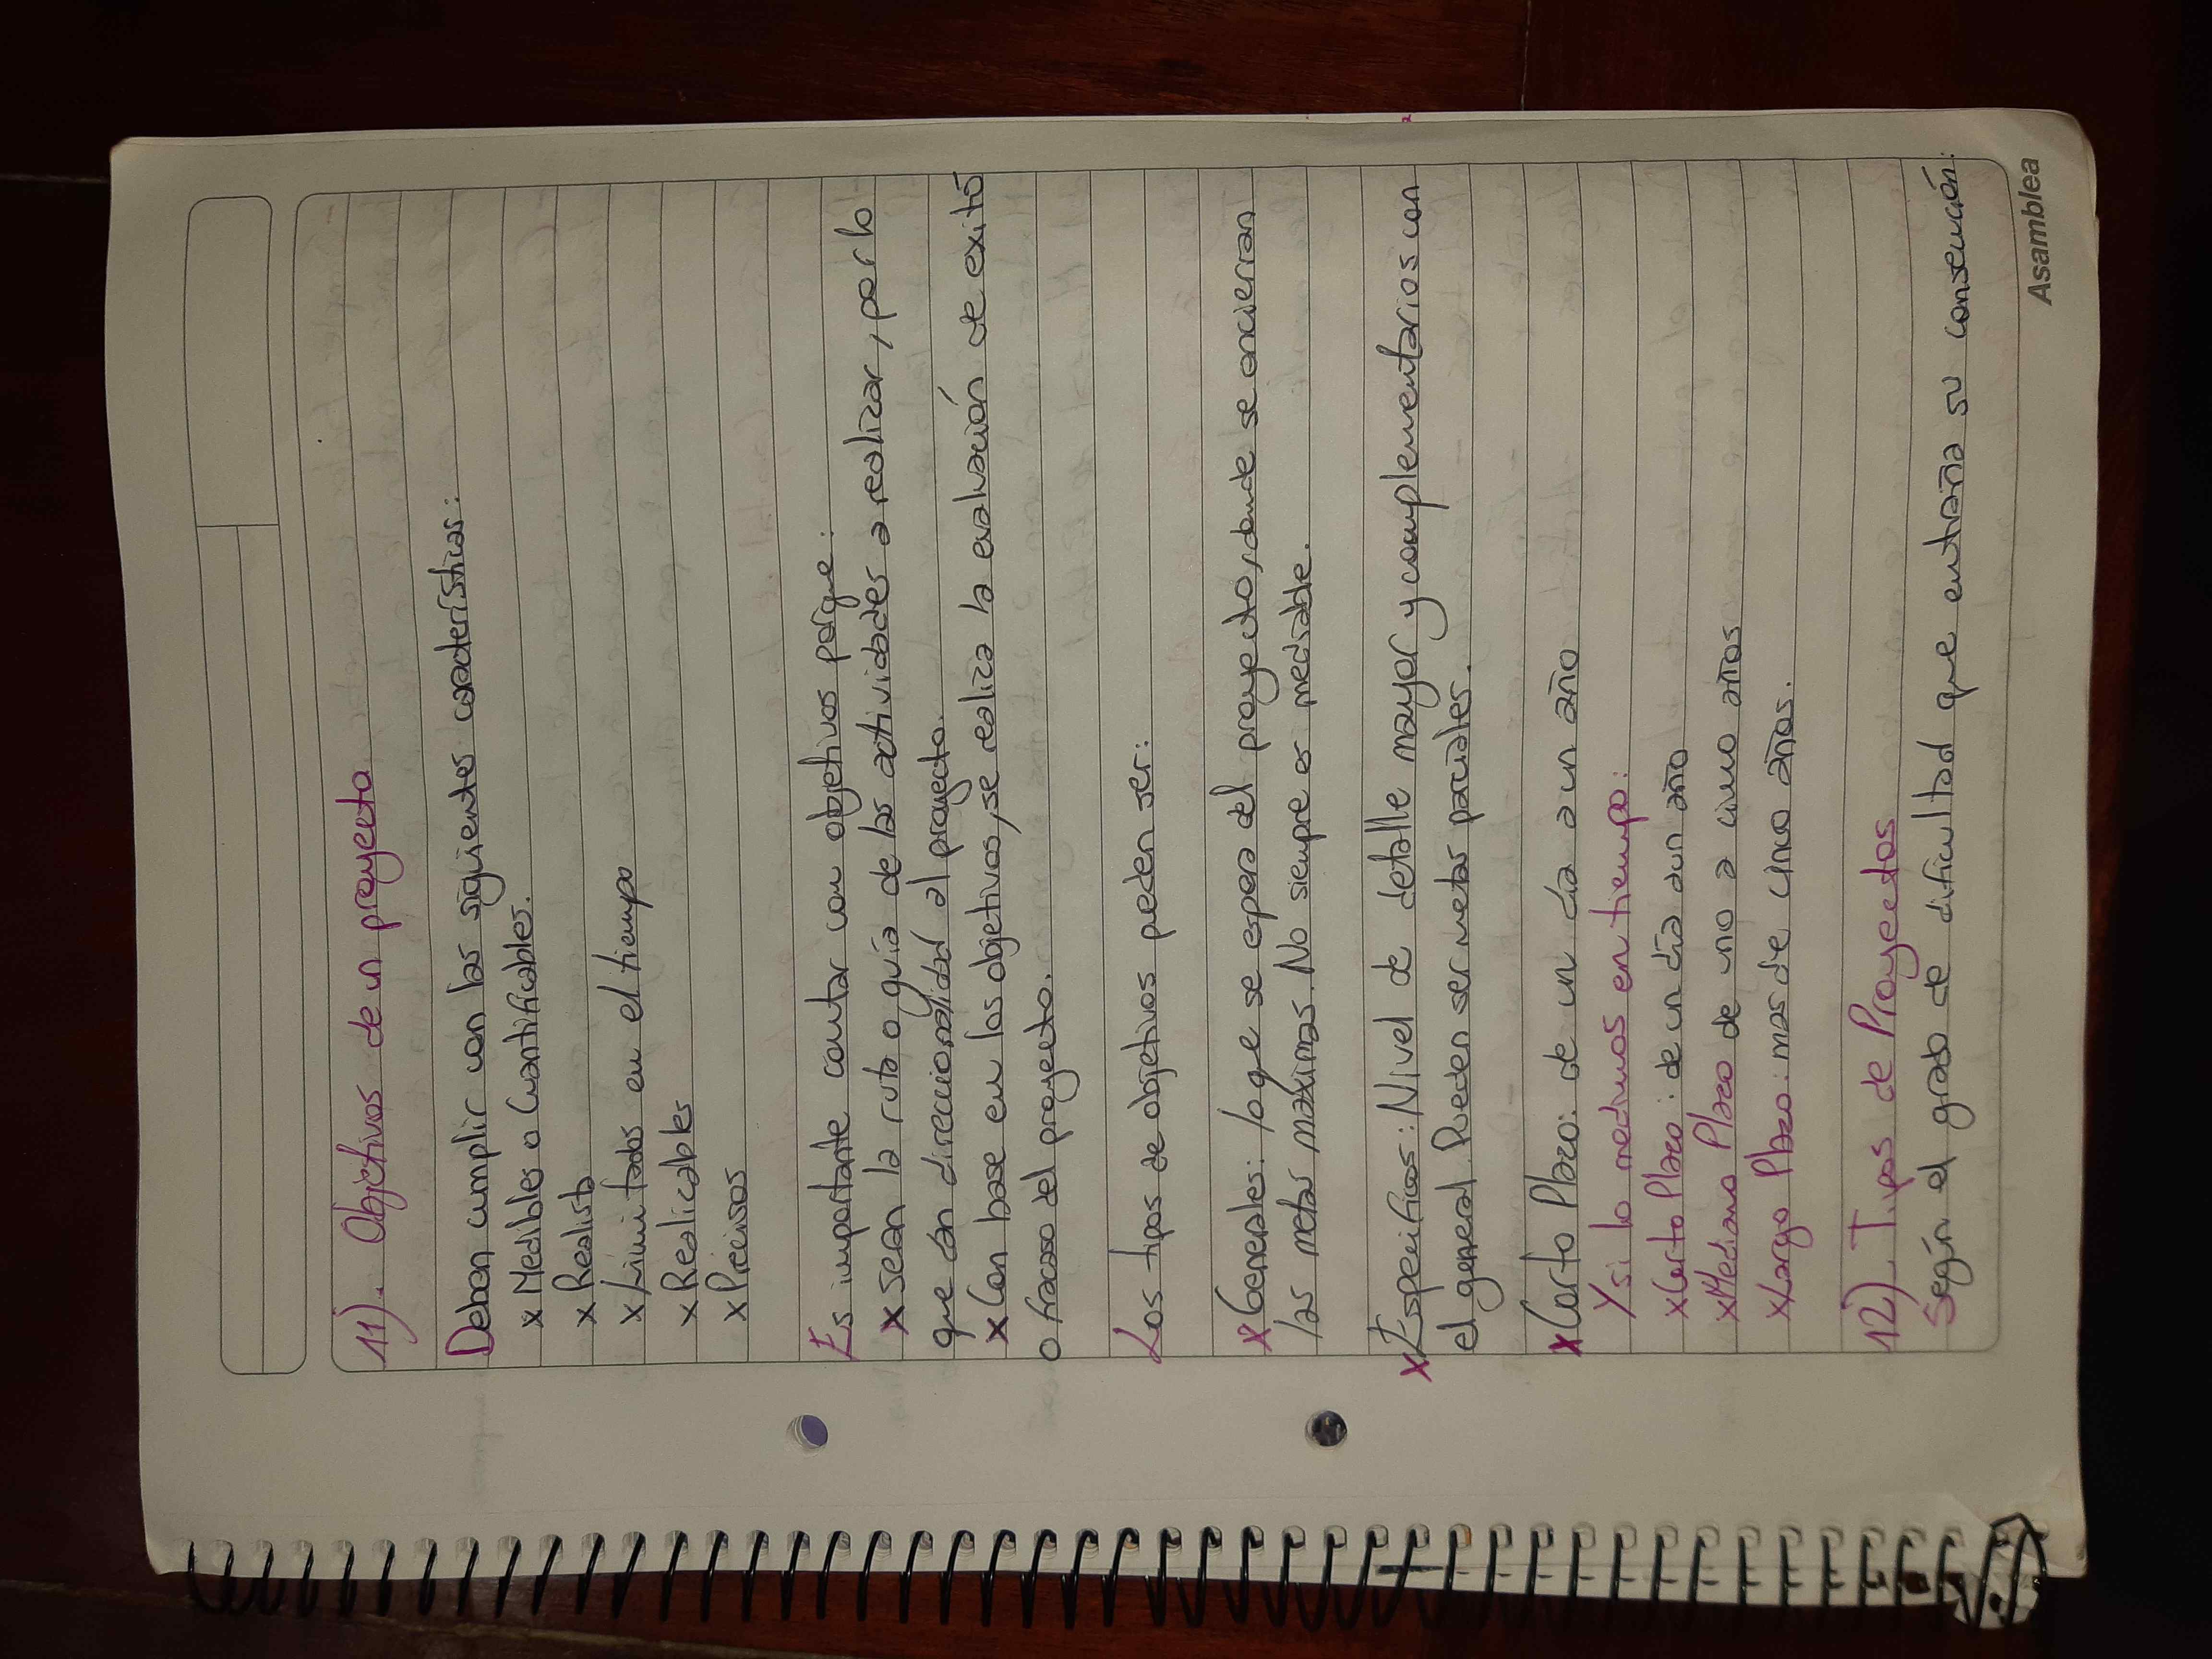 11). Objetivos de un proyecto
Deben cumplir con las siguientes características:
x Medibles o Cuantificables.
x Realista
x Limitados en el tiempo
x Realicables
x Precisos
Es importante contar con objetivos porque:
x seran la ruta o guía de las actividades a realizar, por lo
que dan direccionalidad al proyecto.
x Con base en los objetivos, se realiza la evaluación de exito
o fracaso del proyecto.
Los tipos de objetivos pueden ser:
x Generales: lo que se espera del proyecto, donde se encierran
las metas maximas. No siempre es medible.
x Especificos: Nivel de detalle mayor y complementarios con
el general. Pueden ser metas parciales.
x Corto Plazo: de un día a un año
Y si lo medimos en tiempo:
x Corto Plazo: de un día a un año
x Mediano Plazo de uno a cinco años
x Largo Plazo: mas de cinco años.
12). Tipos de Proyectos
Según el grado de dificultad que entraña su consecución:
Asamblea